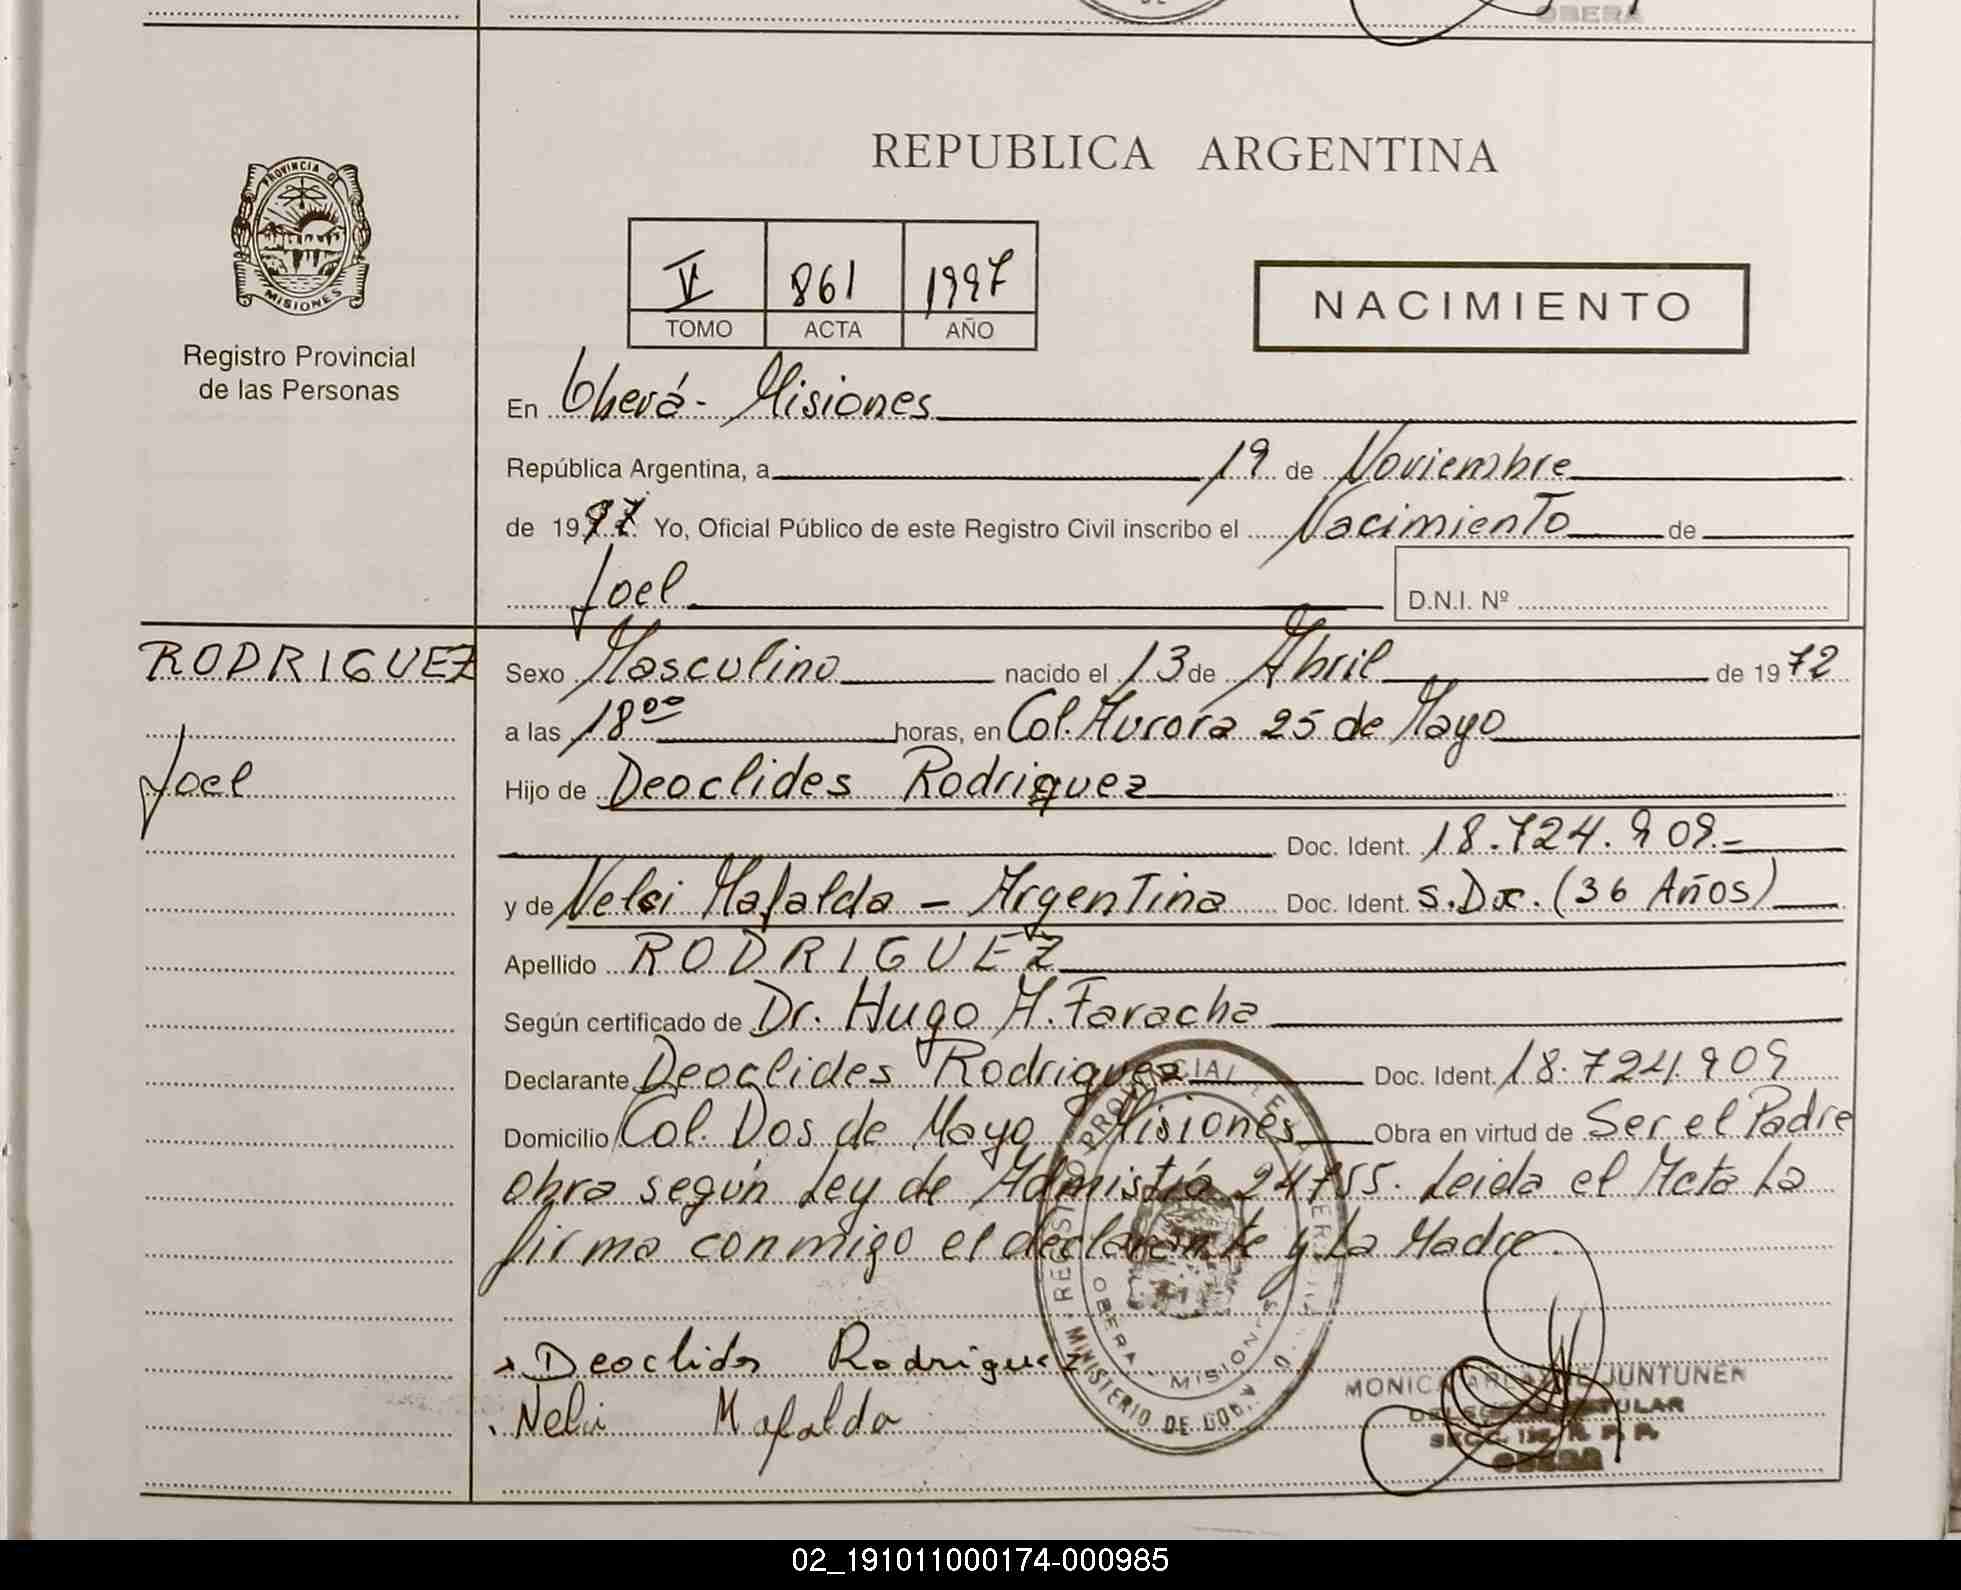 OBERA
REPUBLICA ARGENTINA
PROVINCIA DE
MISIONES
Registro Provincial
de las Personas
V 861 1997
TOMO ACTA AÑO
NACIMIENTO
En Oberá - Misiones
República Argentina, a 19 de Noviembre
de 1997 Yo, Oficial Público de este Registro Civil inscribo el Nacimiento de
Joel D.N.I. Nº
RODRIGUEZ
Joel
Sexo Masculino nacido el 13 de Abril de 1972
a las 18⁰⁰ horas, en Col. Aurora 25 de Mayo
Hijo de Deoclides Rodriguez
Doc. Ident. 18.724.909.-
y de Nelci Mafalda - Argentina Doc. Ident. S.Doc. (36 Años)
Apellido RODRIGUEZ
Según certificado de Dr. Hugo A. Faracha
Declarante Deoclides Rodriguez Doc. Ident. 18.724.909
Domicilio Col. Dos de Mayo Misiones Obra en virtud de Ser el Padre
obra según Ley de Admistía 24755. Leida el Acta La
firma conmigo el declarante y La Madre.
Deoclides Rodriguez
Nelci Mafalda
OBERA - MISIONES
MINISTERIO DE GOB.
MONICA JUNTUNEN
TITULAR
SECC. R. P. P.
OBERA
02_191011000174-000985